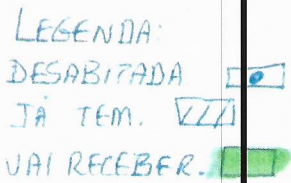 LEGENDA:
DESABITADA
JÁ TEM.
VAI RECEBER.